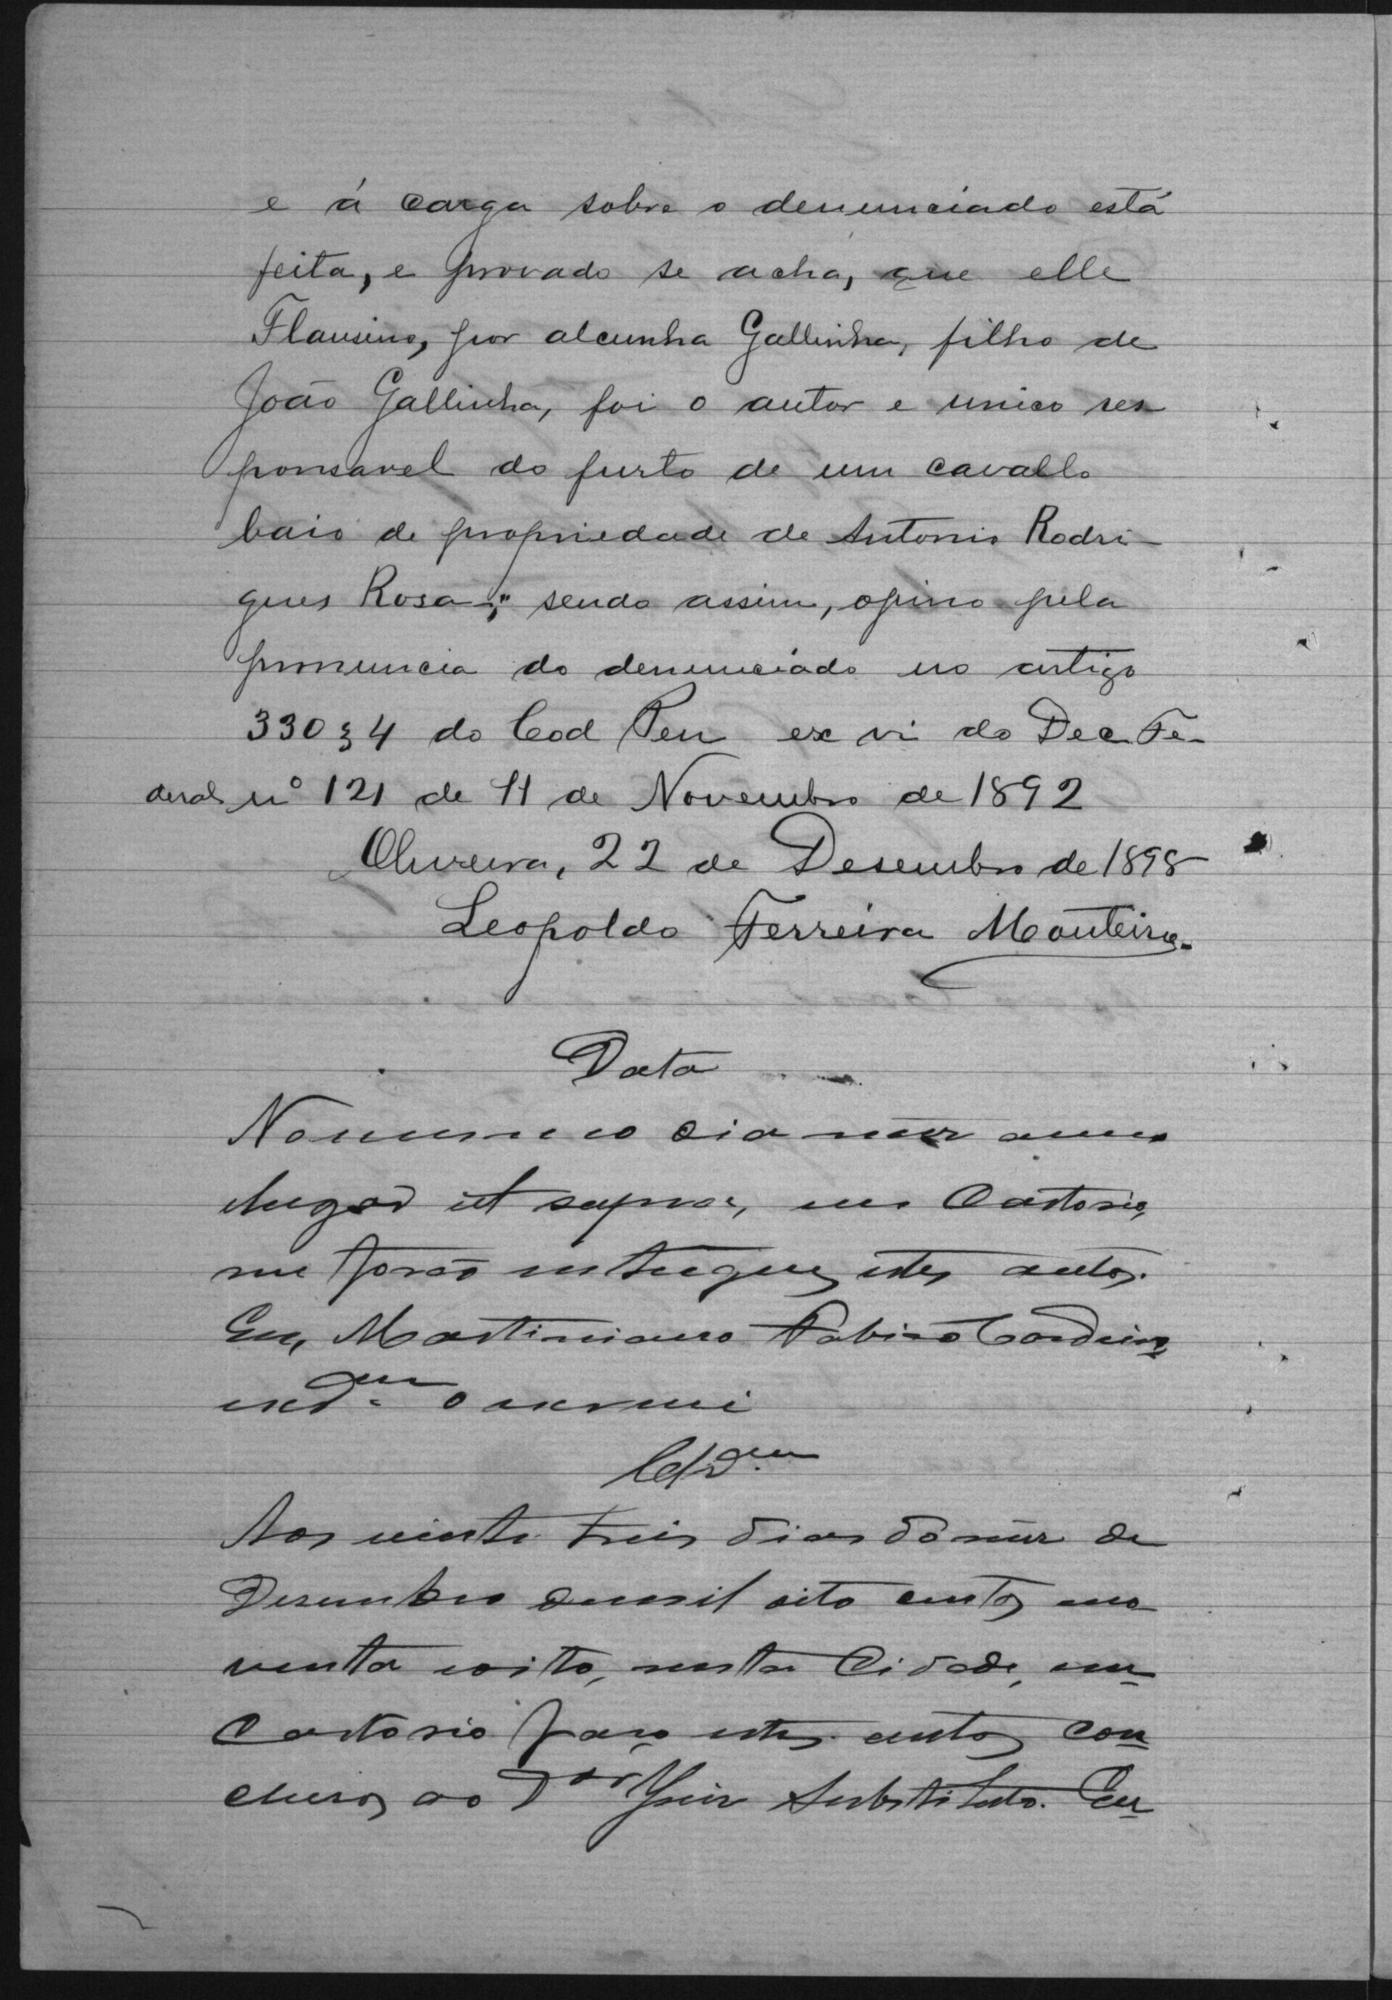 e á carga sobre o denunciado está
feita, e provado se acha, que elle
Flausino, por alcunha Gallinha, filho de
João Gallinha, foi o autor e unico res
ponsavel do furto de um cavallo
baio de propriedade de Antonio Rodri-
gues Rosa; sendo assim, opino pela
pronuncia do denunciado no artigo
330 § 4 do Cod Pen ex vi do Dec. Fe-
deral nº 121 de 11 de Novembro de 1892
Oliveira, 22 de Desembro de 1898
Leopoldo Ferreira Monteiro.
Data
No mesmo dia mez anno
e lugar ut supra, em Cartorio,
me forão entregues estes autos.
Eu, Martiniano Cordeiro,
escrevi
Clsam
Aos vinte tres dias do mez de
Desembro de mil oito centos no
venta e oito, nesta Cidade, em
Cartorio faço estes autos con
clusos ao Dor Juiz Substituto. Eu